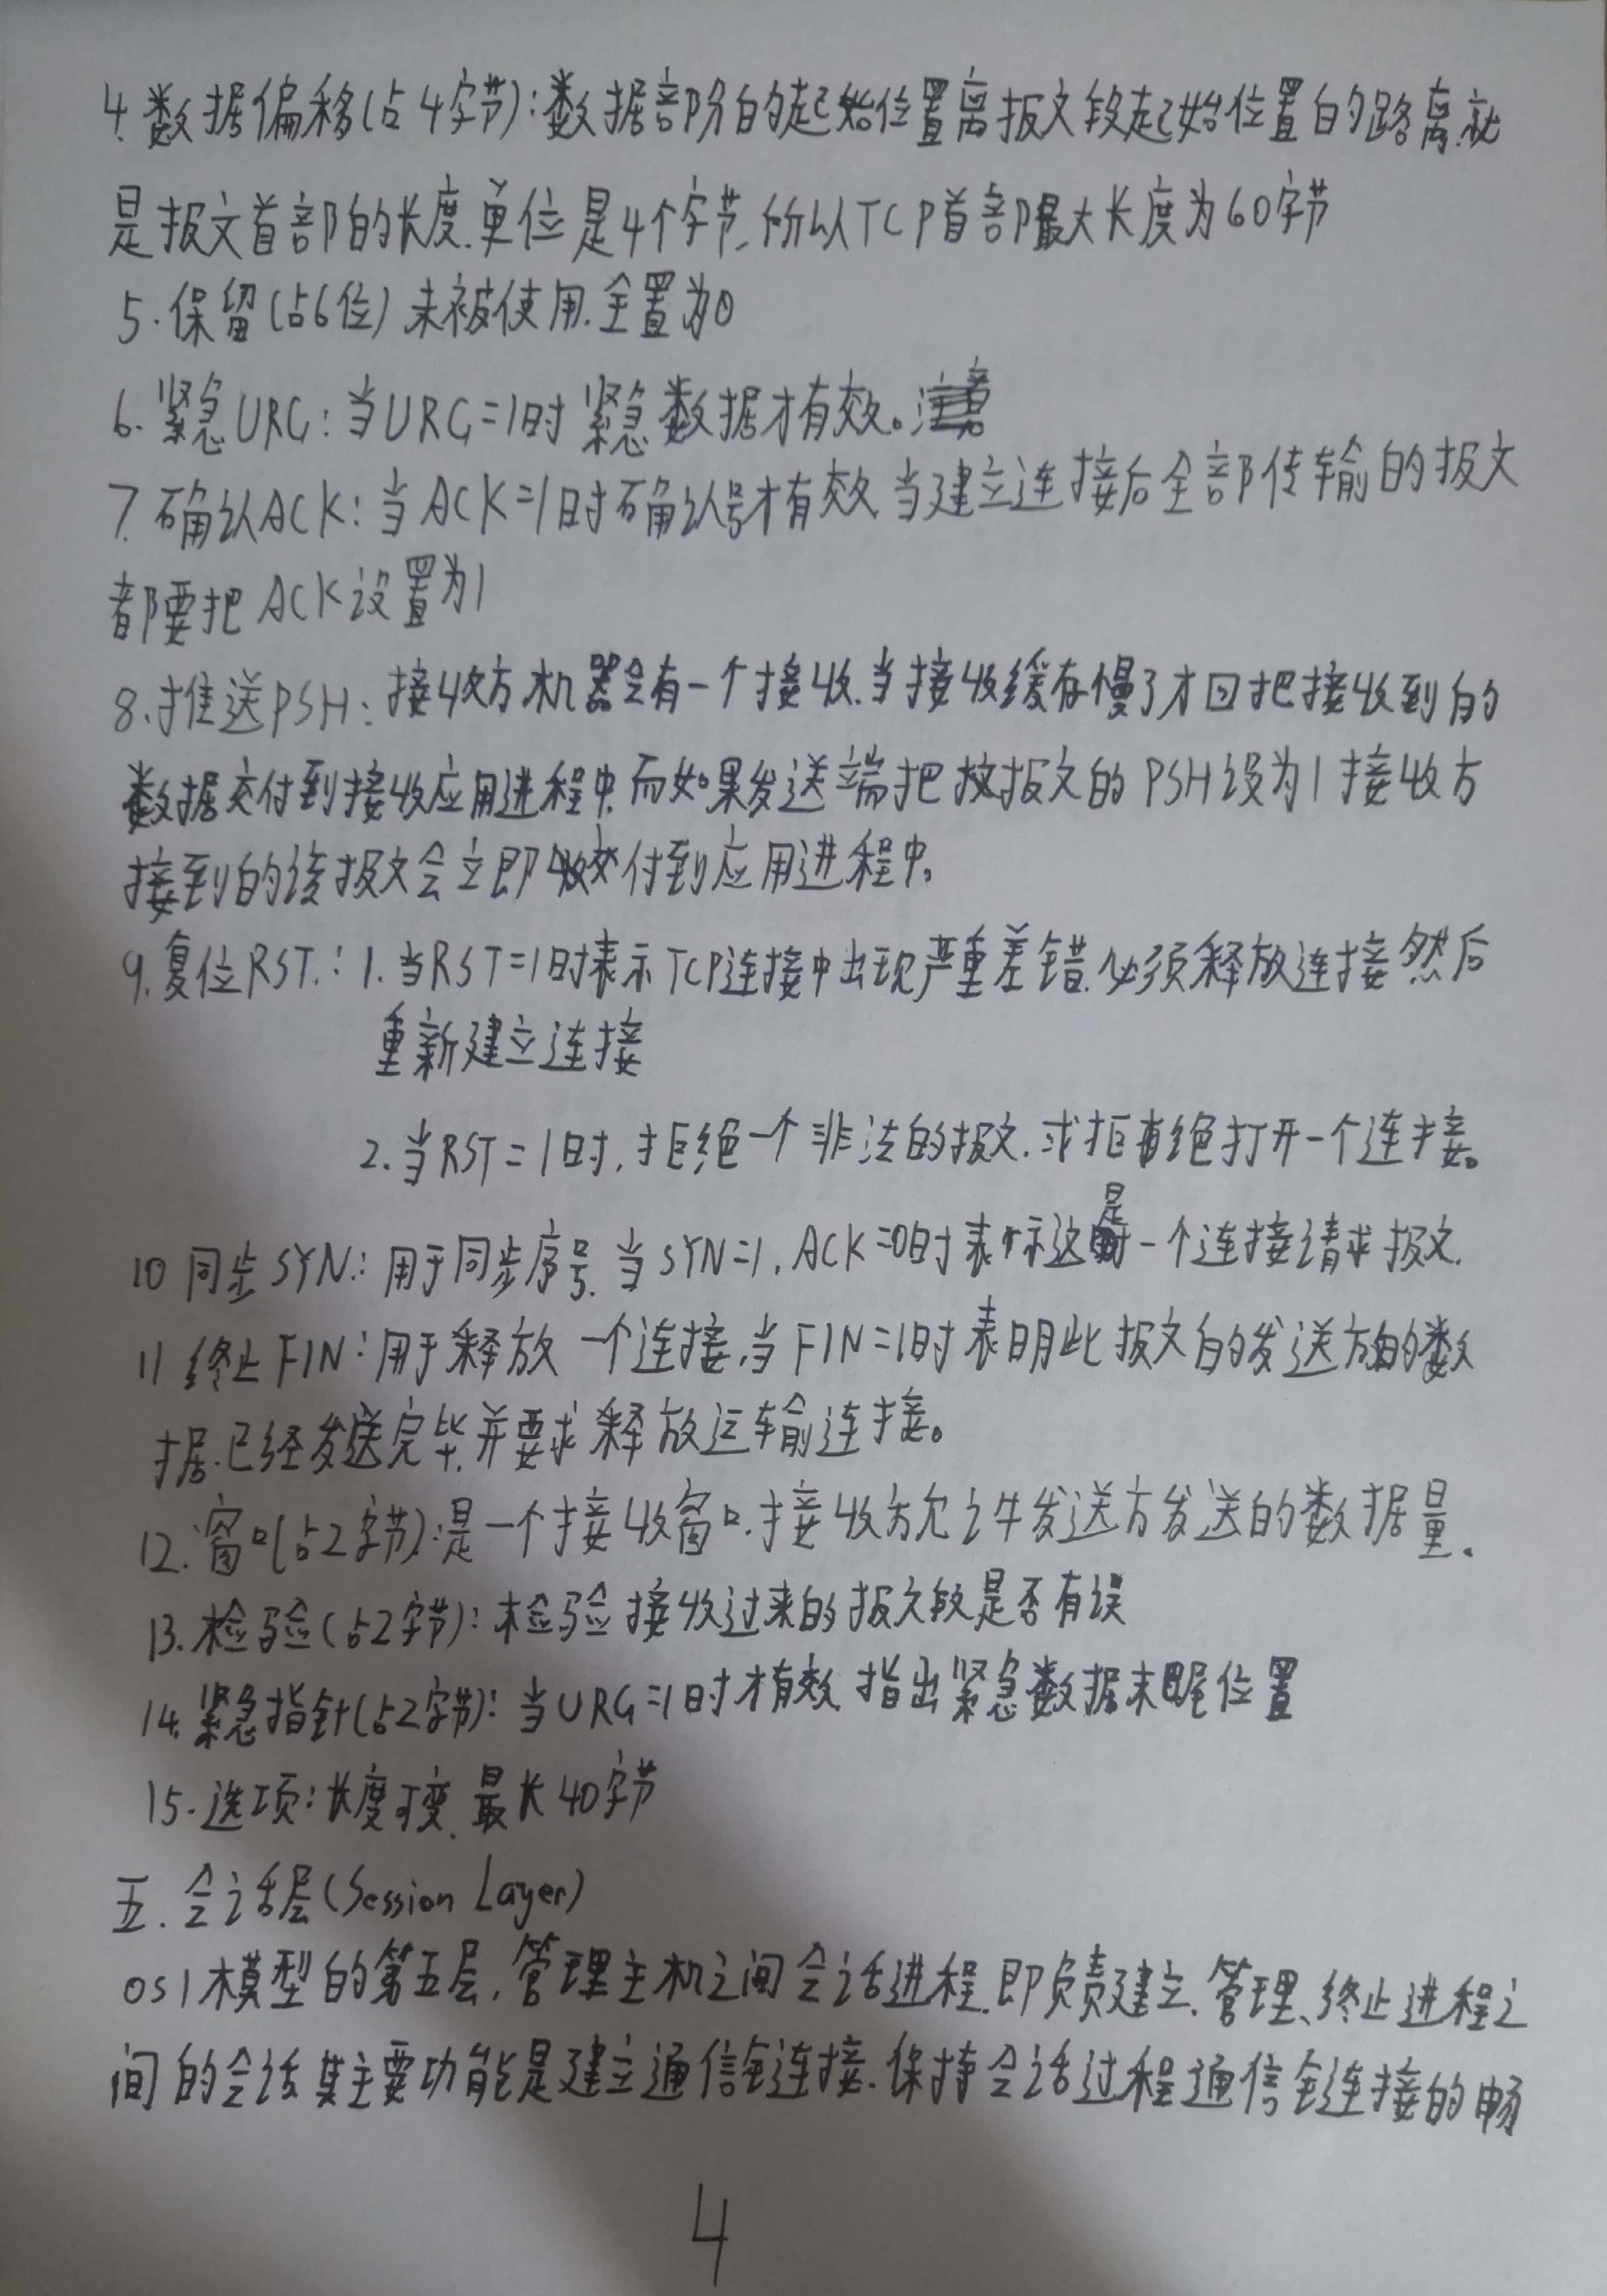 4.数据偏移(占4字节):数据部分的起始位置离报文段起始位置的路离.就
是报文首部的长度.单位是4个字节,所以TCP首部最大长度为60字节
5.保留(占6位)未被使用.全置为0
6.紧急URG:当URG=1时紧急数据才有效。
7.确认ACK:当ACK=1时确认号才有效.当建立连接后全部传输的报文
都要把ACK设置为1
8.推送PSH:接收方机器会有一个接收.当接收缓存慢了才回把接收到的
数据交付到接收应用进程中.而如果发送端把报文的PSH设为1接收方
接到的该报文会立即交付到应用进程中。
9.复位RST.:1.当RST=1时表示TCP连接中出现严重差错.必须释放连接然后
重新建立连接
2.当RST=1时,拒绝一个非法的报文.或拒绝打开一个连接。
10同步SYN.:用于同步序号.当SYN=1,ACK=0时表示这是一个连接请求报文.
11终止FIN:用于释放一个连接.当FIN=1时表明此报文的发送方的数
据.已经发送完毕.并要求释放运输连接。
12.窗口(占2字节):是一个接收窗口.接收方允许发送方发送的数据量.
13.检验(占2字节):检验接收过来的报文段是否有误
14.紧急指针(占2字节):当URG=1时才有效.指出紧急数据末尾位置
15.选项:长度可变.最长40字节
五.会话层(Session Layer)
OSI模型的第五层,管理主机之间会话进程.即负责建立、管理、终止进程之
间的会话其主要功能是建立通信链连接.保持会话过程通信链连接的畅
4